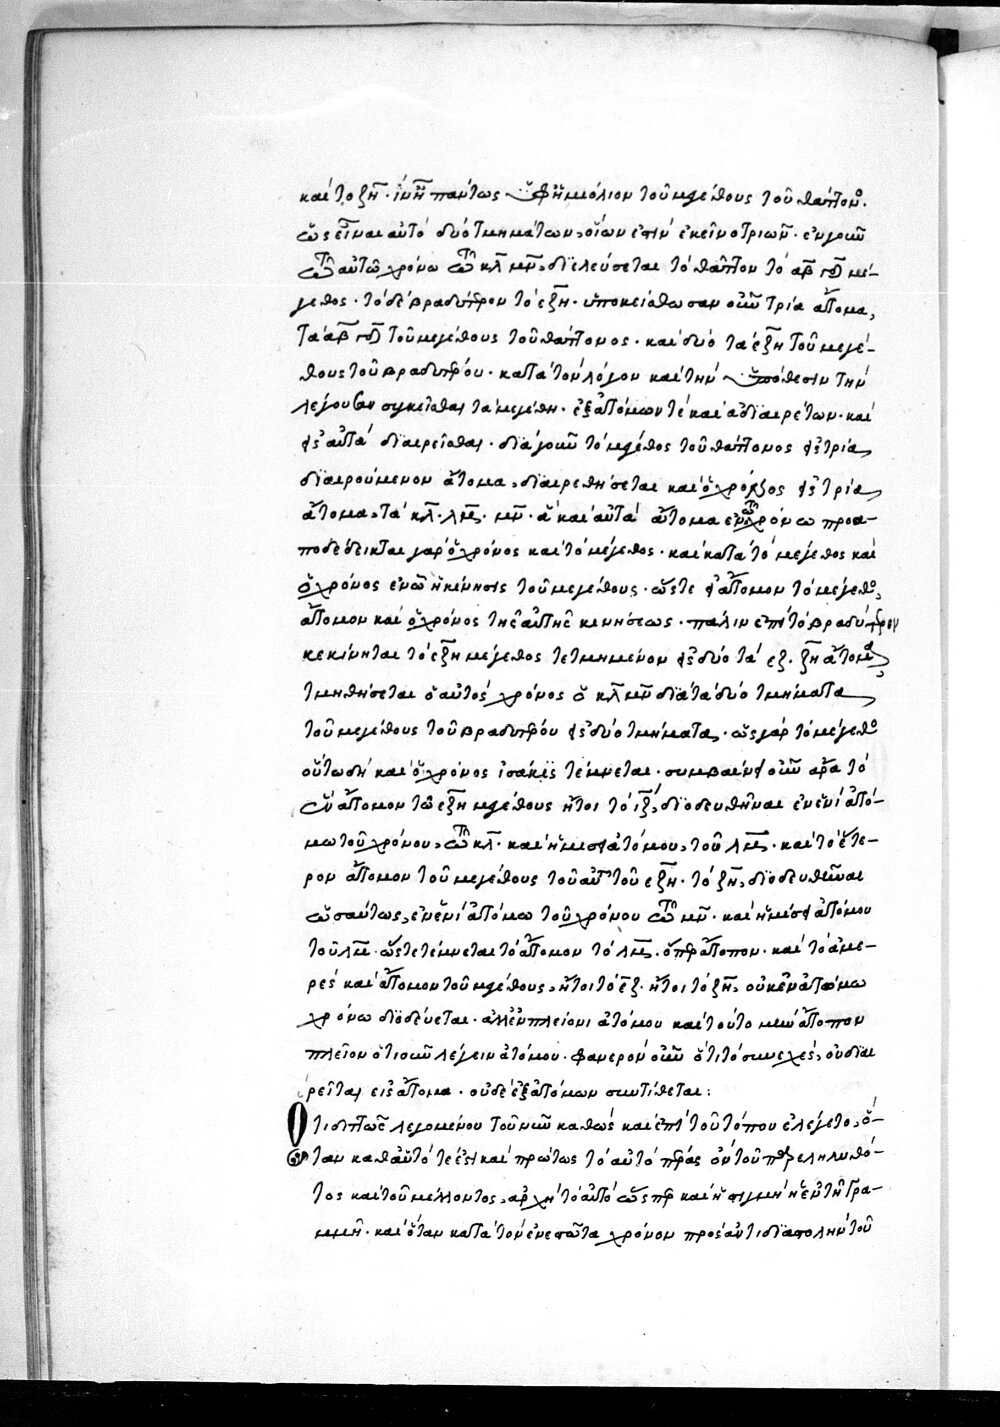 καὶ τὸ ζη. ἵν' ᾖ πάντως ἡμιόλιον τοῦ μεγέθους τοῦ θάττον.
ὡς εἶναι αὐτὸ δύο τμημάτων, οἵων ἐστὶν ἐκεῖνο τριῶν. ἐν γοῦν
τῶ αὐτῶ χρόνω τῶ κλ μν, διελεύσεται τὸ θᾶττον τὸ αβ γδ μέ-
γεθος. τὸ δὲ βραδύτερον τὸ εζη. ὑποκείσθωσαν οὖν τρία ἄτομα,
τὰ αβ γδ τοῦ μεγέθους τοῦ θάττονος. καὶ δύο τὰ εζη τοῦ μεγέ-
θους τοῦ βραδυτέρου. κατὰ τὸν λόγον καὶ τὴν ὑπόθεσιν τὴν
λέγουσαν συγκεῖσθαι τὰ μεγέθη. ἐξ ἀτόμων τὲ καὶ ἀδιαιρέτων. καὶ
εἰς αὐτὰ διαιρεῖσθαι. διὰ γοῦν τὸ μέγεθος τοῦ θάττονος εἰς τρία
διαιρούμενον ἄτομα, διαιρεθήσεται καὶ ὁ χρόνος εἰς τρία
ἄτομα, τὰ κλ. λμ. μν. ἃ καὶ αὐτὰ ἄτομα ἐν τῶ χρόνω προα-
ποδέδεικται γὰρ ὁ χρόνος κατὰ τὸ μέγεθος. καὶ κατὰ τὸ μέγεθος καὶ
ὁ χρόνος ἐν ὧ ἡ κίνησις τοῦ μεγέθους. ὥστε εἰ ἄτομον τὸ μέγεθος,
ἄτομον καὶ ὁ χρόνος τῆς αὐτῆς κινήσεως. πάλιν ἐπεὶ τὸ βραδύτερον
κεκίνηται τὸ εζη μέγεθος τετμημένον εἰς δύο τὰ εζ. ζη ἄτομα,
τμηθήσεται ὁ αὐτὸς χρόνος ὁ κλ μν διὰ τὰ δύο τμήματα
τοῦ μεγέθους τοῦ βραδυτέρου εἰς δύο τμήματα. ὡς γὰρ τὸ μέγεθος
οὕτω δὴ καὶ ὁ χρόνος ἰσάκις τέμνεται. συμβαίνει οὖν ἄρα τὸ
ἓν ἄτομον τοῦ εζη μεγέθους ἤτοι τὸ εζ, διοδευθῆναι ἐν ἑνὶ ἀτό-
μω τοῦ χρόνου, τῶ κλ. καὶ ἡμίσει ἀτόμου, τοῦ λμ. καὶ τὸ ἕτε-
ρον ἄτομον τοῦ μεγέθους τοῦ αὐτοῦ τοῦ εζη. τὸ ζη, διοδευθῆναι
ὡσαύτως, ἐν ἑνὶ ἀτόμω τοῦ χρόνου τῶ μν. καὶ ἡμίσει ἀτόμου
τοῦ λμ. ὥστε τέμνεται τὸ ἄτομον τὸ λμ. ὅπερ ἄτοπον. καὶ τὸ ἀμε-
ρὲς καὶ ἄτομον τοῦ μεγέθους, ἤτοι τὸ εζ. ἤτοι τὸ ζη, οὐκ ἐν ἀτόμω
χρόνω διοδεύεται. ἀλλ' ἐν πλείονι ἀτόμου καὶ τοῦτο μὲν ἄτοπον
πλεῖον ὁτιοῦν λέγειν ἀτόμου. φανερὸν οὖν ὅτι τὸ συνεχὲς, οὐ διαι
ρεῖται εἰς ἄτομα. οὐδὲ ἐξ ἀτόμων συντίθεται:
Ὅτι διττῶς λεγομένου τοῦ νῦν καθὼς καὶ ἐπὶ τοῦ τόπου ἐλέγετο, ὅ-
ταν καθ' αὑτό τέ ἐστι καὶ πρώτως τὸ αὐτὸ πέρας ὂν τοῦ παρεληλυθό-
τος καὶ τοῦ μέλλοντος, ἀρχὴ τὸ αὐτὸ ὥσπερ καὶ ἡ στιγμὴ ἡ ἐν τῆ γρα-
μμῆ. καὶ ὅταν κατὰ τὸν ἐνεστῶτα χρόνον πρὸς ἀντιδιαστολὴν τοῦ